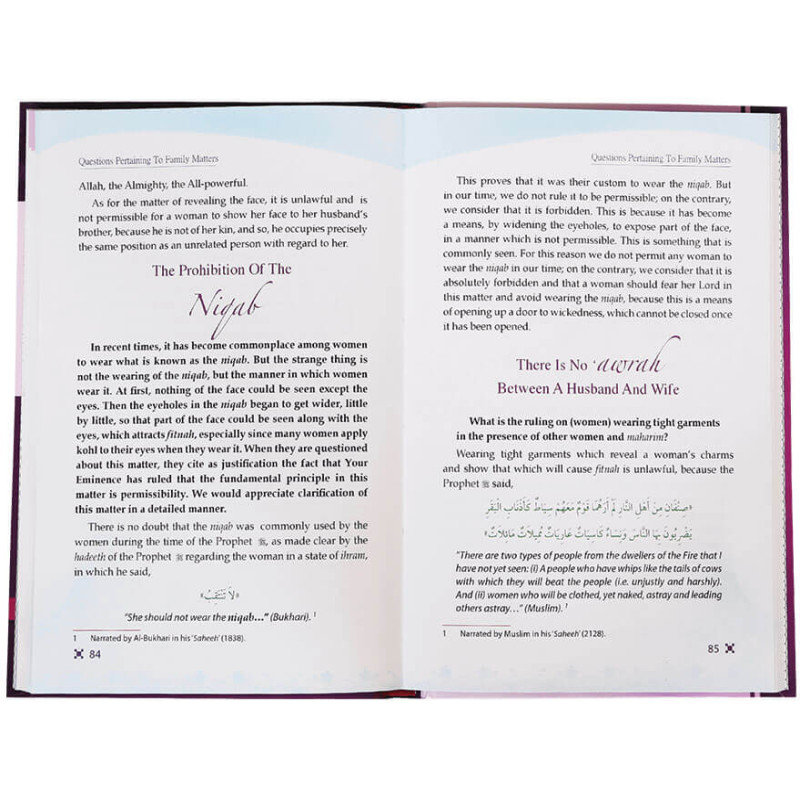 Questions Pertaining To Family Matters
Allah, the Almighty, the All-powerful.
As for the matter of revealing the face, it is unlawful and is
not permissible for a woman to show her face to her husband's
brother, because he is not of her kin, and so, he occupies precisely
the same position as an unrelated person with regard to her.
The Prohibition Of The
Niqab
In recent times, it has become commonplace among women
to wear what is known as the niqab. But the strange thing is
not the wearing of the niqab, but the manner in which women
wear it. At first, nothing of the face could be seen except the
eyes. Then the eyeholes in the niqab began to get wider, little
by little, so that part of the face could be seen along with the
eyes, which attracts fitnah, especially since many women apply
kohl to their eyes when they wear it. When they are questioned
about this matter, they cite as justification the fact that Your
Eminence has ruled that the fundamental principle in this
matter is permissibility. We would appreciate clarification of
this matter in a detailed manner.
There is no doubt that the niqab was commonly used by the
women during the time of the Prophet ﷺ, as made clear by the
hadeeth of the Prophet ﷺ regarding the woman in a state of ihram,
in which he said,
«لَا تَنْتَقِبْ»
"She should not wear the niqab..." (Bukhari). 1
1 Narrated by Al-Bukhari in his 'Saheeh' (1838).
84
Questions Pertaining To Family Matters
This proves that it was their custom to wear the niqab. But
in our time, we do not rule it to be permissible; on the contrary,
we consider that it is forbidden. This is because it has become
a means, by widening the eyeholes, to expose part of the face,
in a manner which is not permissible. This is something that is
commonly seen. For this reason we do not permit any woman to
wear the niqab in our time; on the contrary, we consider that it is
absolutely forbidden and that a woman should fear her Lord in
this matter and avoid wearing the niqab, because this is a means
of opening up a door to wickedness, which cannot be closed once
it has been opened.
There Is No 'awrah
Between A Husband And Wife
What is the ruling on (women) wearing tight garments
in the presence of other women and maharim?
Wearing tight garments which reveal a woman's charms
and show that which will cause fitnah is unlawful, because the
Prophet ﷺ said,
«صِنْفَانِ مِنْ أَهْلِ النَّارِ لَمْ أَرَهُمَا قَوْمٌ مَعَهُمْ سِيَاطٌ كَأَذْنَابِ الْبَقَرِ
يَضْرِبُونَ بِهَا النَّاسَ وَنِسَاءٌ كَاسِيَاتٌ عَارِيَاتٌ مُمِيلَاتٌ مَائِلَاتٌ»
"There are two types of people from the dwellers of the Fire that I
have not yet seen: (i) A people who have whips like the tails of cows
with which they will beat the people (i.e. unjustly and harshly).
And (ii) women who will be clothed, yet naked, astray and leading
others astray..." (Muslim). 1
1 Narrated by Muslim in his 'Saheeh' (2128).
85